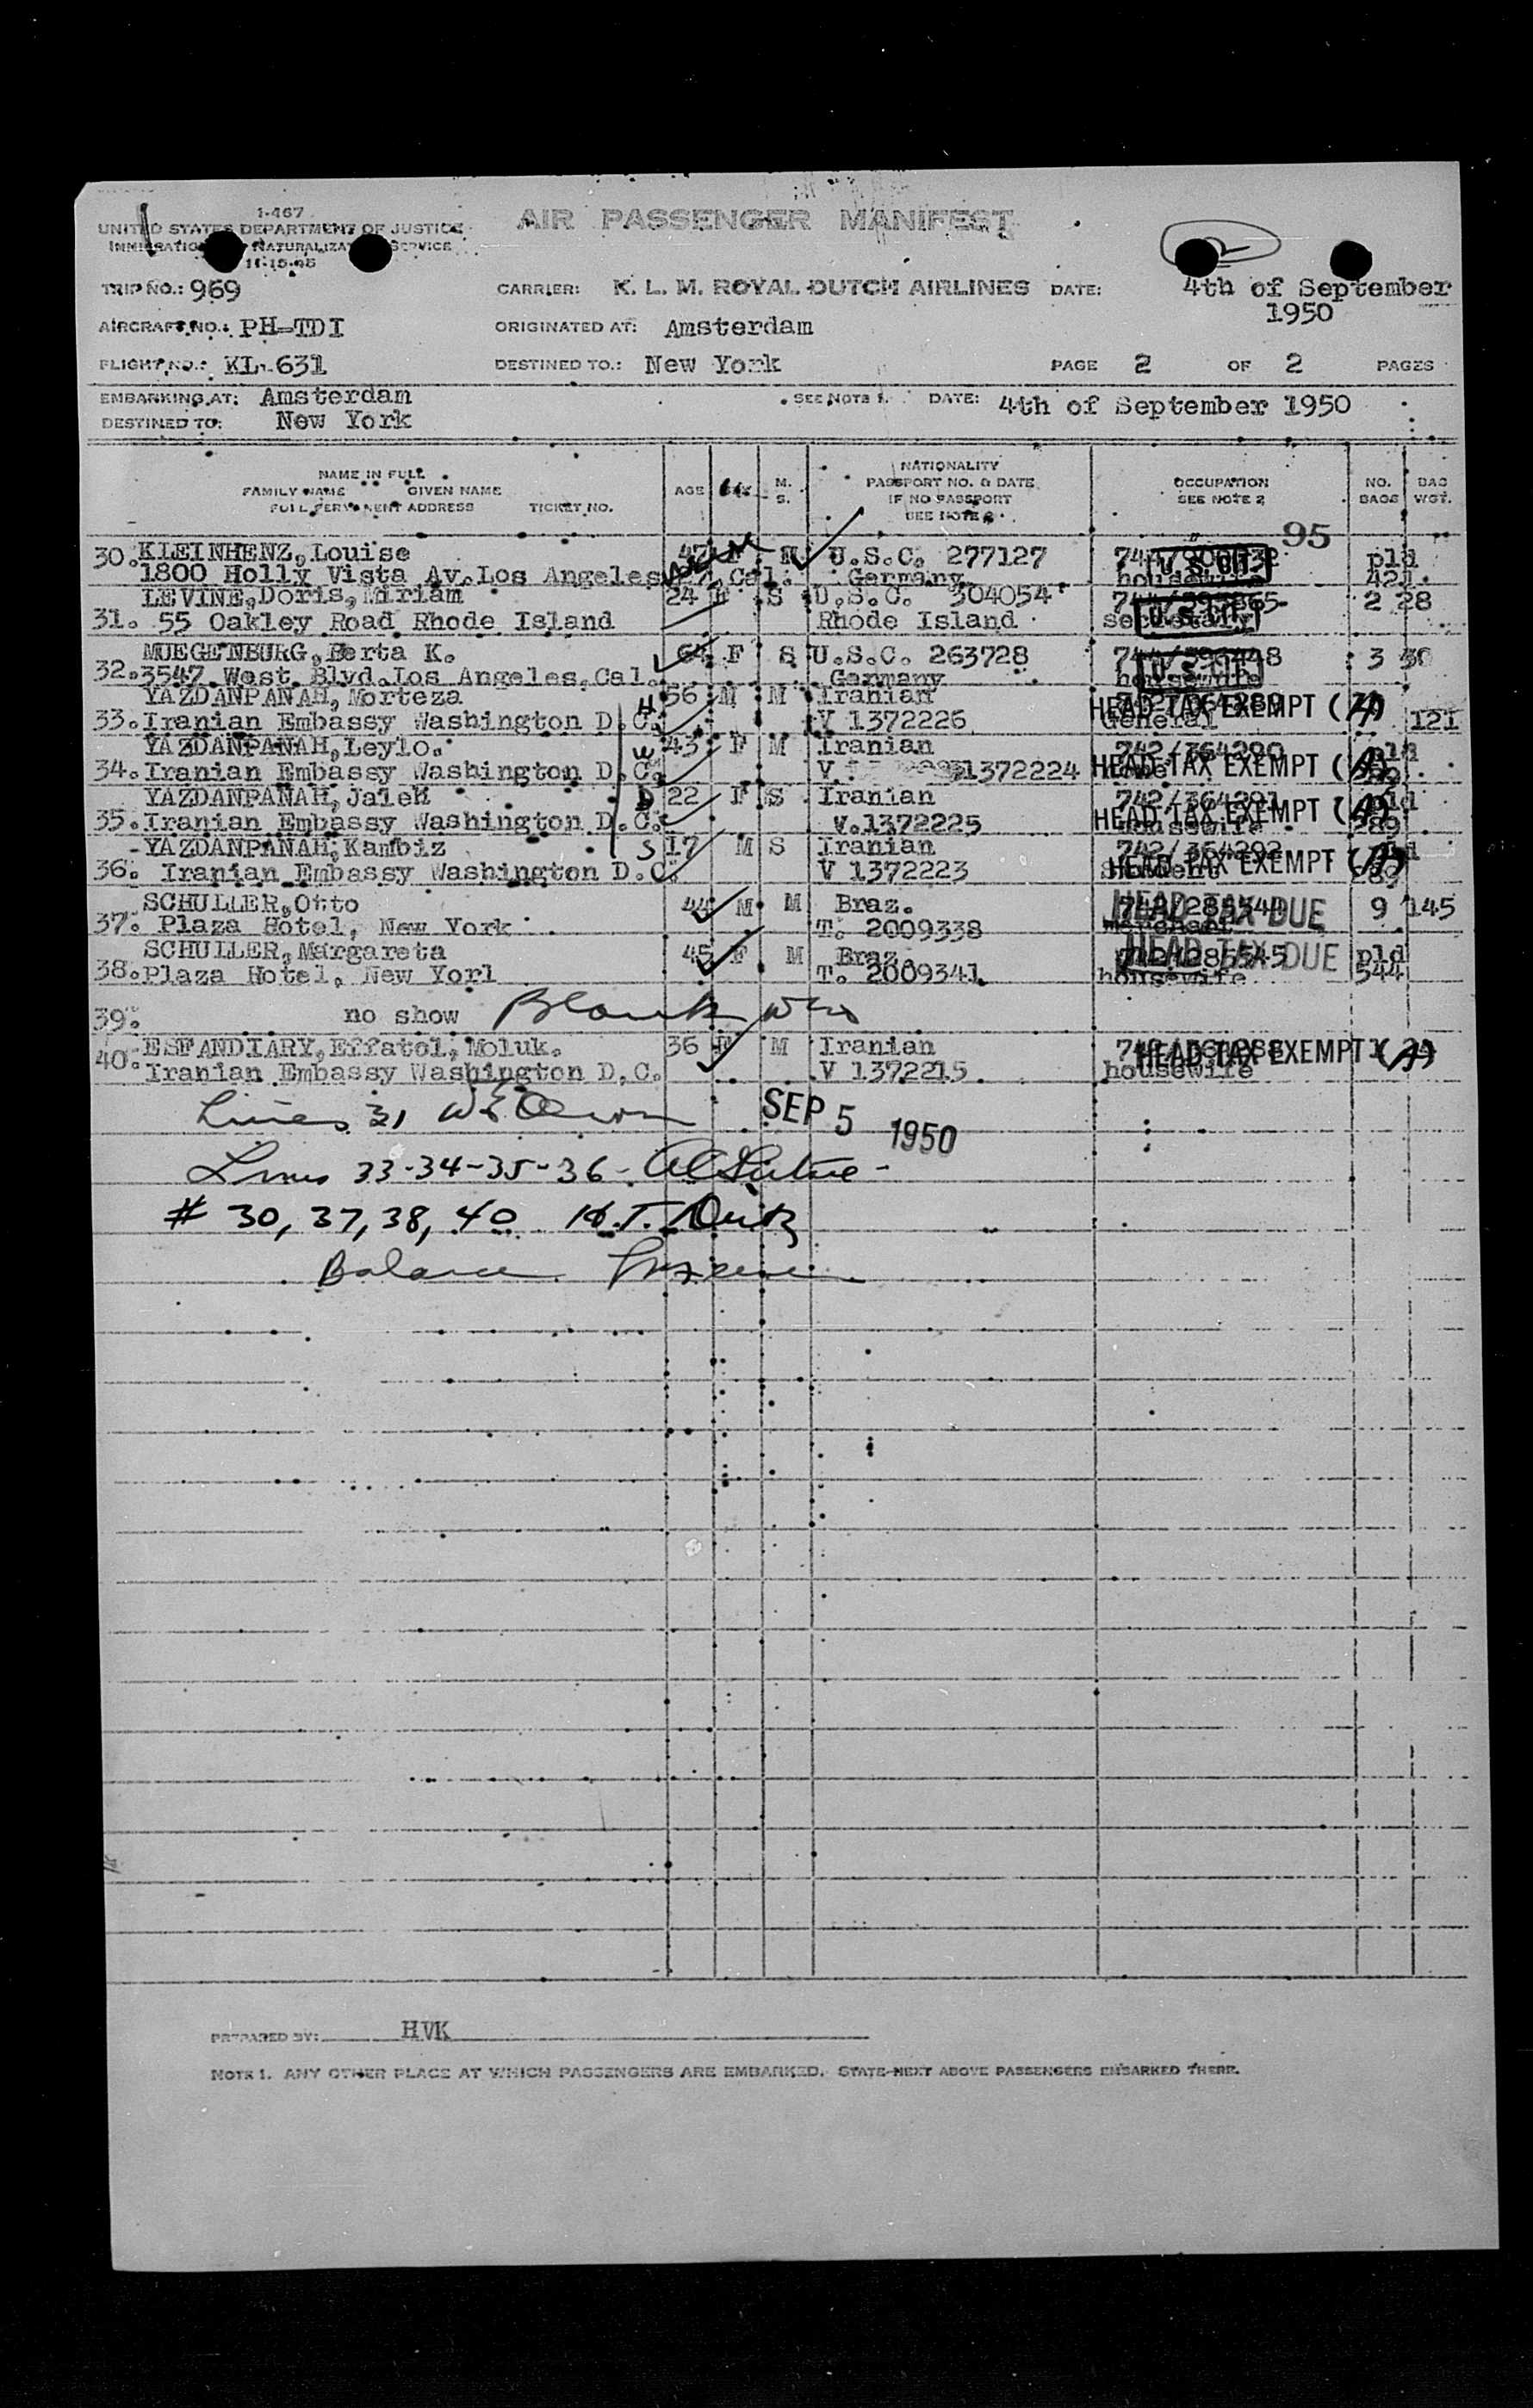 1-467
UNITED STATES DEPARTMENT OF JUSTICE
AIR PASSENGER MANIFEST
11-15-45
TRIP NO.: 969 CARRIER: K. L. M. ROYAL DUTCH AIRLINES DATE: 4th of September
1950
AIRCRAFT NO.: PH-TDI ORIGINATED AT: Amsterdam
FLIGHT NO.: KL-631 DESTINED TO: New York PAGE 2 OF 2 PAGES
EMBARKING AT: Amsterdam SEE NOTE 1. DATE: 4th of September 1950
DESTINED TO: New York
NAME IN FULL
FAMILY NAME GIVEN NAME
FULL PERMANENT ADDRESS TICKET NO.
AGE M. S.
NATIONALITY
PASSPORT NO. & DATE
IF NO PASSPORT
SEE NOTE 2
OCCUPATION
SEE NOTE 2
NO. BAGS BAG WGT.
95
30. KLEINHENZ, Louise 47 F M U.S.C. 277127 pld
1800 Holly Vista Av. Los Angeles, Cal. Germany housewife 421
LEVINE, Doris, Miriam 24 F S U.S.C. 304054 2 28
31. 55 Oakley Road Rhode Island Rhode Island secretary
MUEGENBURG, Berta K. 64 F S U.S.C. 263728 3 30
32. 3547 West. Blvd. Los Angeles, Cal. Germany housewife
YAZDANPANAH, Morteza H 56 M M Iranian HEAD TAX EXEMPT
33. Iranian Embassy Washington D.C. V 1372226 General 121
YAZDANPANAH, Leylo. W 43 F M Iranian 742/364290
34. Iranian Embassy Washington D.C. V 1372224 HEAD TAX EXEMPT
YAZDANPANAH, Jaleh D 22 F S Iranian 742/364291
35. Iranian Embassy Washington D.C. V.1372225 HEAD TAX EXEMPT 289
YAZDANPANAH, Kambiz S 17 M S Iranian 742/364292
36. Iranian Embassy Washington D.C. V 1372223 HEAD TAX EXEMPT
SCHULLER, Otto 44 M M Braz. HEAD TAX DUE 9 145
37. Plaza Hotel, New York T. 2009338 merchant
SCHULLER, Margareta 45 F M Braz. HEAD TAX DUE pld
38. Plaza Hotel, New Yorl T. 2009341 housewife 544
39. no show Blank
ESFANDIARY, Effatol, Moluk. 36 F M Iranian HEAD TAX EXEMPT
40. Iranian Embassy Washington D.C. V 1372215 housewife
Lines 31
SEP 5 1950
Lines 33-34-35-36-
# 30, 37, 38, 40
Balance
PREPARED BY: HVK
NOTE 1. ANY OTHER PLACE AT WHICH PASSENGERS ARE EMBARKED. STATE NEXT ABOVE PASSENGERS EMBARKED THERE.